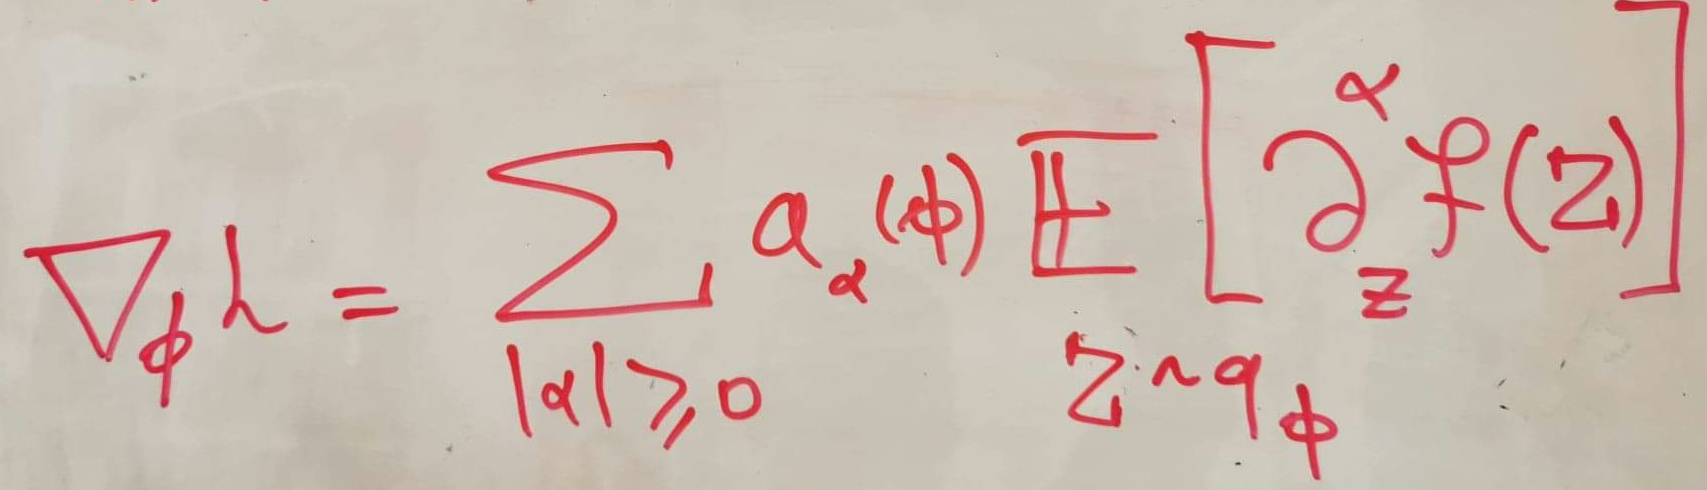 ∇_ϕ h = ∑_{|α|⩾0} a_α(ϕ) 𝔼_{Z∼q_ϕ} [∂_z^α f(Z)]